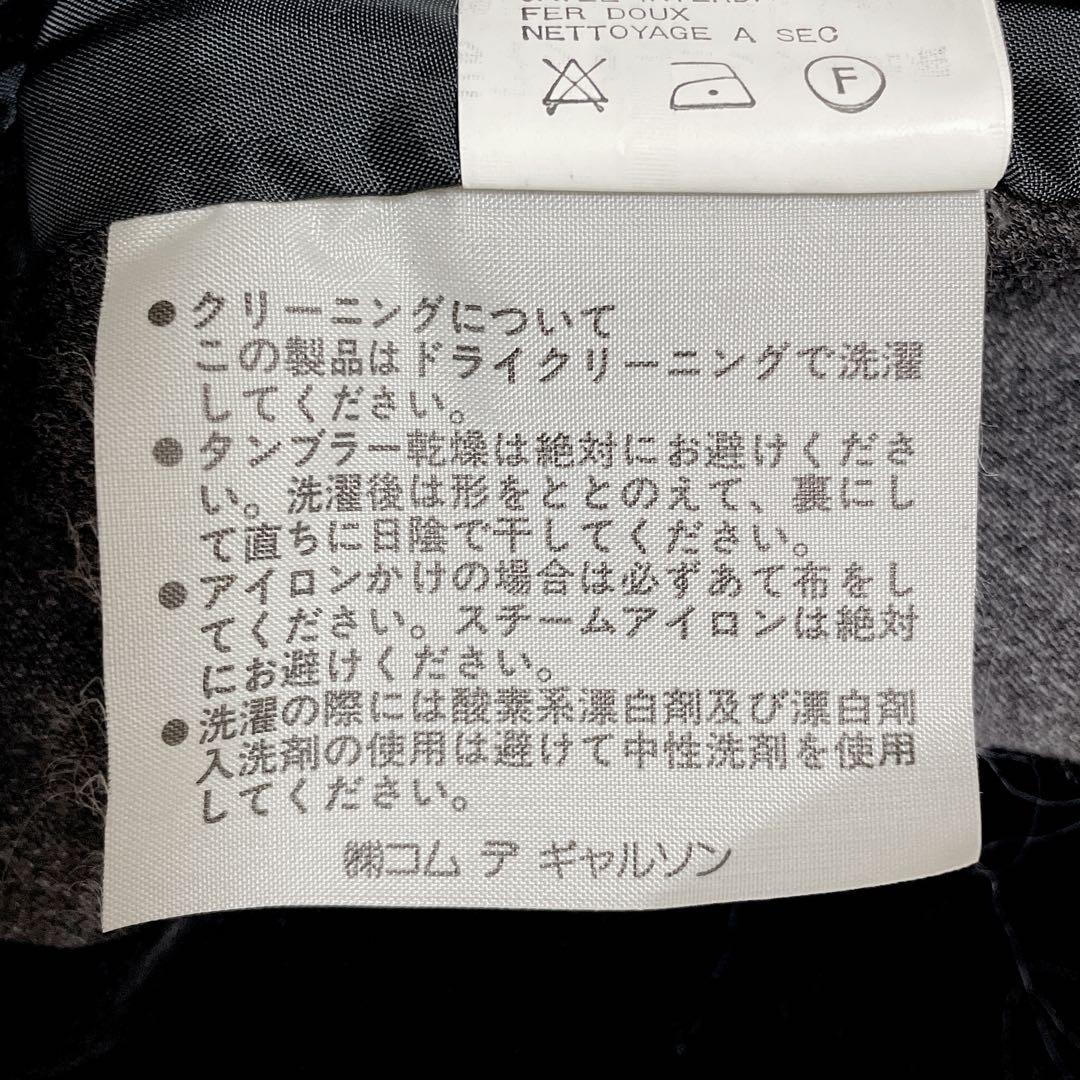 FER DOUX
NETTOYAGE A SEC
F
● クリーニングについて
この製品はドライクリーニングで洗濯
してください。
● タンブラー乾燥は絶対にお避けくださ
い。洗濯後は形をととのえて、裏にし
て直ちに日陰で干してください。
● アイロンかけの場合は必ずあて布をし
てください。スチームアイロンは絶対
にお避けください。
● 洗濯の際には酸素系漂白剤及び漂白剤
入洗剤の使用は避けて中性洗剤を使用
してください。
㈱コム デ ギャルソン